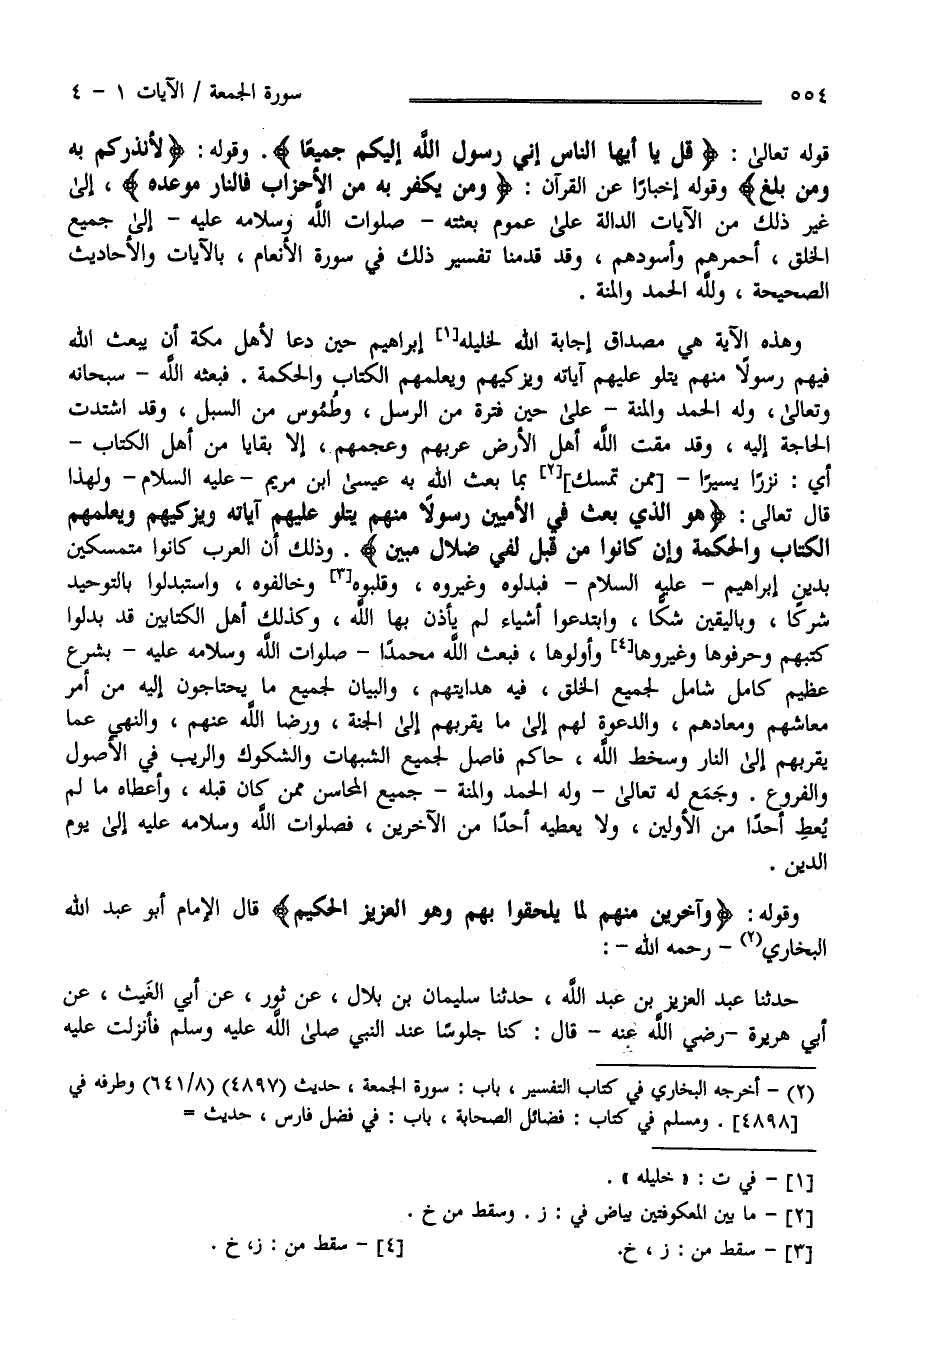 ٥٥٤ سورة الجمعة / الآيات ١ - ٤
قوله تعالىٰ : ﴿ قل يا أيها الناس إني رسول اللَّه إليكم جميعًا ﴾ . وقوله : ﴿ لأنذركم به
ومن بلغ﴾ وقوله إخبارًا عن القرآن : ﴿ ومن يكفر به من الأحزاب فالنار موعده ﴾ ، إلىٰ
غير ذلك من الآيات الدالة علىٰ عموم بعثته - صلوات اللَّه وسلامه عليه - إلىٰ جميع
الخلق ، أحمرهم وأسودهم ، وقد قدمنا تفسير ذلك في سورة الأنعام ، بالآيات والأحاديث
الصحيحة ، وللَّه الحمد والمنة .
وهذه الآية هي مصداق إجابة الله لخليله[١] إبراهيم حين دعا لأهل مكة أن يبعث الله
فيهم رسولًا منهم يتلو عليهم آياته ويزكيهم ويعلمهم الكتاب والحكمة . فبعثه اللَّه - سبحانه
وتعالىٰ ، وله الحمد والمنة - علىٰ حين فترة من الرسل ، وطُمُوس من السبل ، وقد اشتدت
الحاجة إليه ، وقد مقت اللَّه أهل الأرض عربهم وعجمهم ، إلا بقايا من أهل الكتاب -
أي : نزرًا يسيرًا - [ممن تمسك][٢] بما بعث الله به عيسىٰ ابن مريم -عليه السلام- ولهذا
قال تعالى : ﴿هو الذي بعث في الأميين رسولًا منهم يتلو عليهم آياته ويزكيهم ويعلمهم
الكتاب والحكمة وإن كانوا من قبل لفي ضلال مبين ﴾ . وذلك أن العرب كانوا متمسكين
بدين إبراهيم - عليه السلام - فبدلوه وغيروه ، وقلبوه[٣] وخالفوه ، واستبدلوا بالتوحيد
شركًا ، وباليقين شكًّا ، وابتدعوا أشياء لم يأذن بها اللَّه ، وكذلك أهل الكتابين قد بدلوا
كتبهم وحرفوها وغيروها[٤] وأولوها ، فبعث اللَّه محمدًا - صلوات اللَّه وسلامه عليه - بشرع
عظيم كامل شامل لجميع الخلق ، فيه هدايتهم ، والبيان لجميع ما يحتاجون إليه من أمر
معاشهم ومعادهم ، والدعوة لهم إلىٰ ما يقربهم إلىٰ الجنة ، ورضا اللَّه عنهم ، والنهي عما
يقربهم إلىٰ النار وسخط اللَّه ، حاكم فاصل لجميع الشبهات والشكوك والريب في الأصول
والفروع . وجَمَع له تعالىٰ - وله الحمد والمنة - جميع المحاسن ممن كان قبله ، وأعطاه ما لم
يُعطِ أحدًا من الأولين ، ولا يعطيه أحدًا من الآخرين ، فصلوات اللَّه وسلامه عليه إلىٰ يوم
الدين .
وقوله : ﴿وآخرين منهم لما يلحقوا بهم وهو العزيز الحكيم﴾ قال الإمام أبو عبد الله
البخاري(٢) - رحمه الله - :
حدثنا عبد العزيز بن عبد اللَّه ، حدثنا سليمان بن بلال ، عن ثور ، عن أبي الغَيث ، عن
أبي هريرة -رضي اللَّه عنه - قال : كنا جلوسًا عند النبي صلىٰ اللَّه عليه وسلم فأنزلت عليه
(٢) - أخرجه البخاري في كتاب التفسير ، باب : سورة الجمعة ، حديث (٤٨٩٧) (٦٤١/٨) وطرفه في
[٤٨٩٨] . ومسلم في كتاب : فضائل الصحابة ، باب : في فضل فارس ، حديث =
[١] - في ت : « خليله » .
[٢] - ما بين المعكوفتين بياض في : ز . وسقط من خ .
[٣] - سقط من : ز ، خ. [٤] - سقط من : ز، خ .